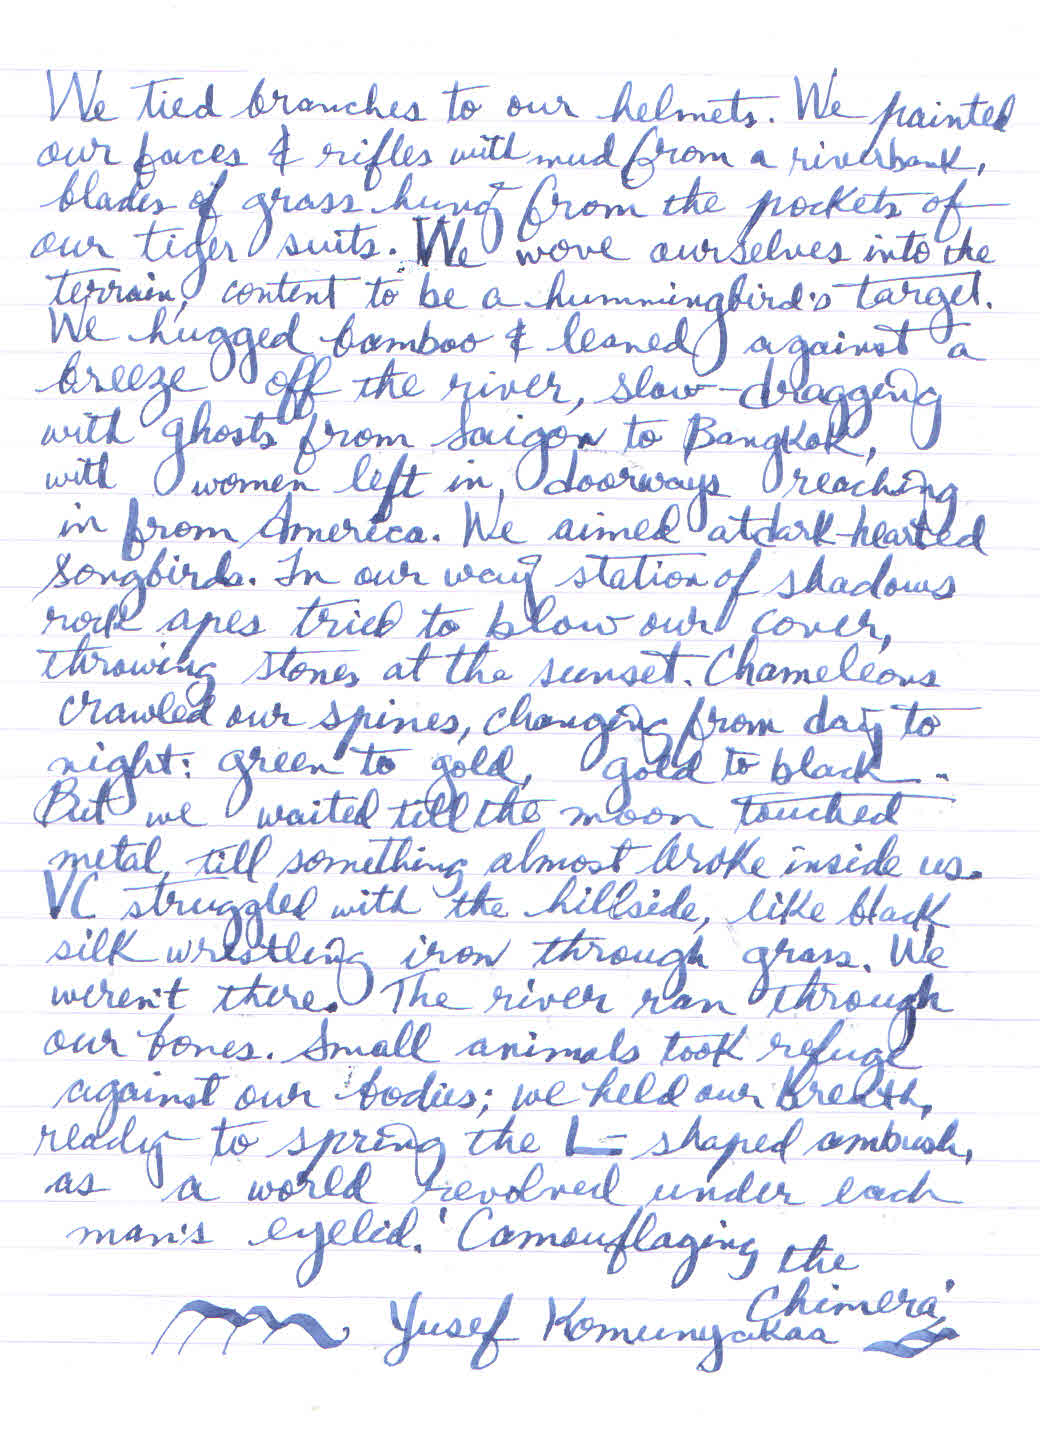 We tied branches to our helmets. We painted
our faces & rifles with mud from a riverbank,
blades of grass hung from the pockets of
our tiger suits. We wove ourselves into the
terrain, content to be a hummingbird's target.
We hugged bamboo & leaned against a
breeze off the river, slow-dragging
with ghosts from Saigon to Bangkok,
with women left in doorways reaching
in from America. We aimed at dark-hearted
songbirds. In our way station of shadows
rock apes tried to blow our cover,
throwing stones at the sunset. Chameleons
crawled our spines, changing from day to
night: green to gold, gold to black.
But we waited till the moon touched
metal, till something almost broke inside us.
VC struggled with the hillside, like black
silk wrestling iron through grass. We
weren't there. The river ran through
our bones. Small animals took refuge
against our bodies; we held our breath,
ready to spring the L-shaped ambush,
as a world revolved under each
man's eyelid. 'Camouflaging the
Chimera'
Yusef Komunyakaa